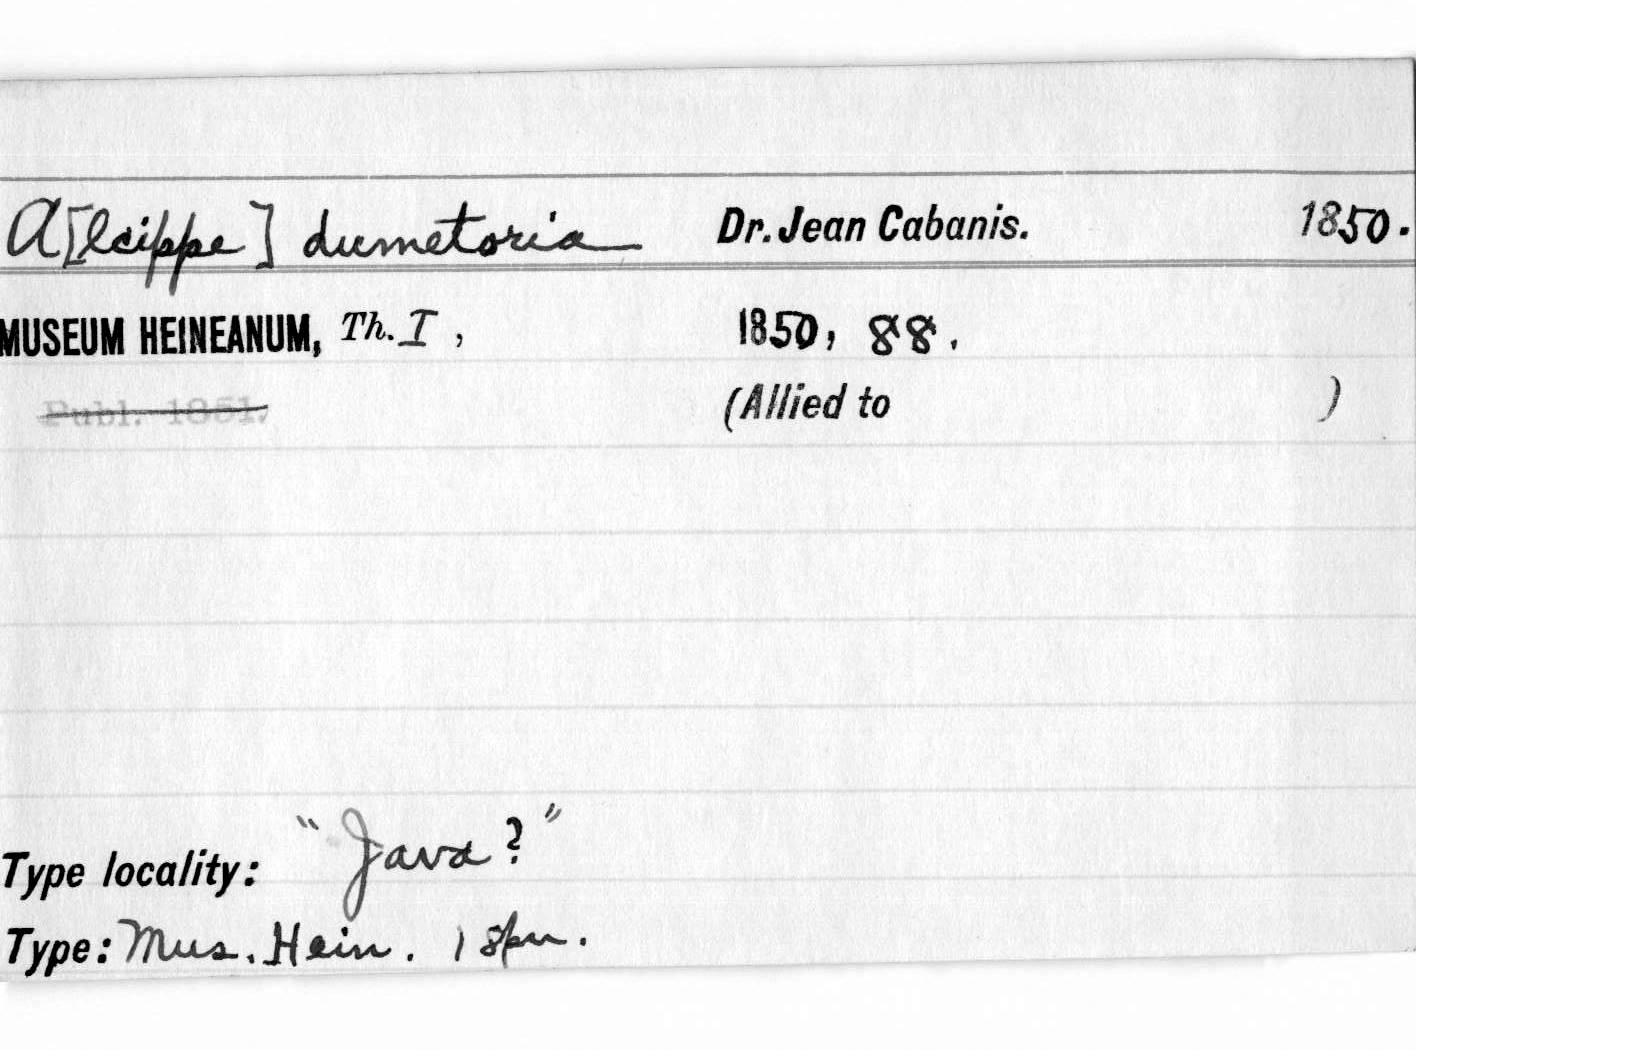 A[lcippe] dumetoria Dr. Jean Cabanis. 1850.
MUSEUM HEINEANUM, Th. I, 1850, 88.
Publ. 1851. (Allied to )
Type locality: "Java?"
Type: Mus. Hein. 1 spn.